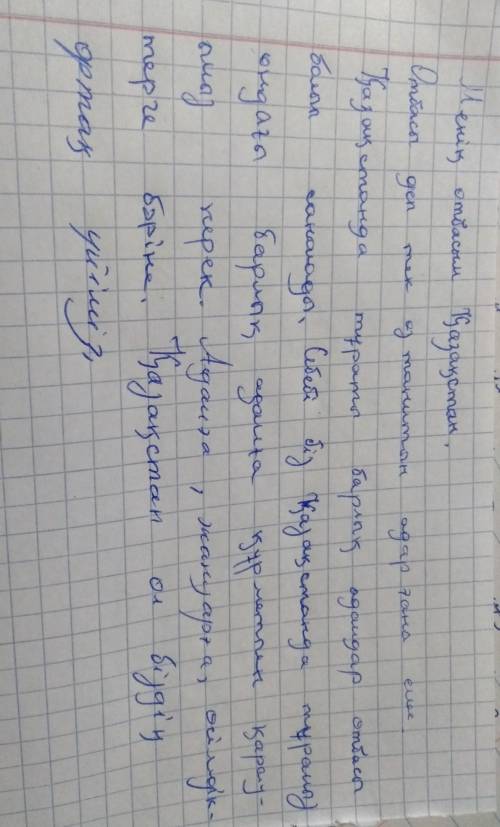 Менің отбасым Қазақстан.
Отбасы деп тек өз танитын адар ғана емес.
Қазақстанда тұраты барлық адамдар отбасы
болып саналады. Себебі біз Қазақстанда тұрамыз
ондағы барлық адамға құрметпен қарау-
ымыз керек. Адамға, жануарға, өсімдік-
терге бәріне. Қазақстан ол біздің
ортақ үйіміз,